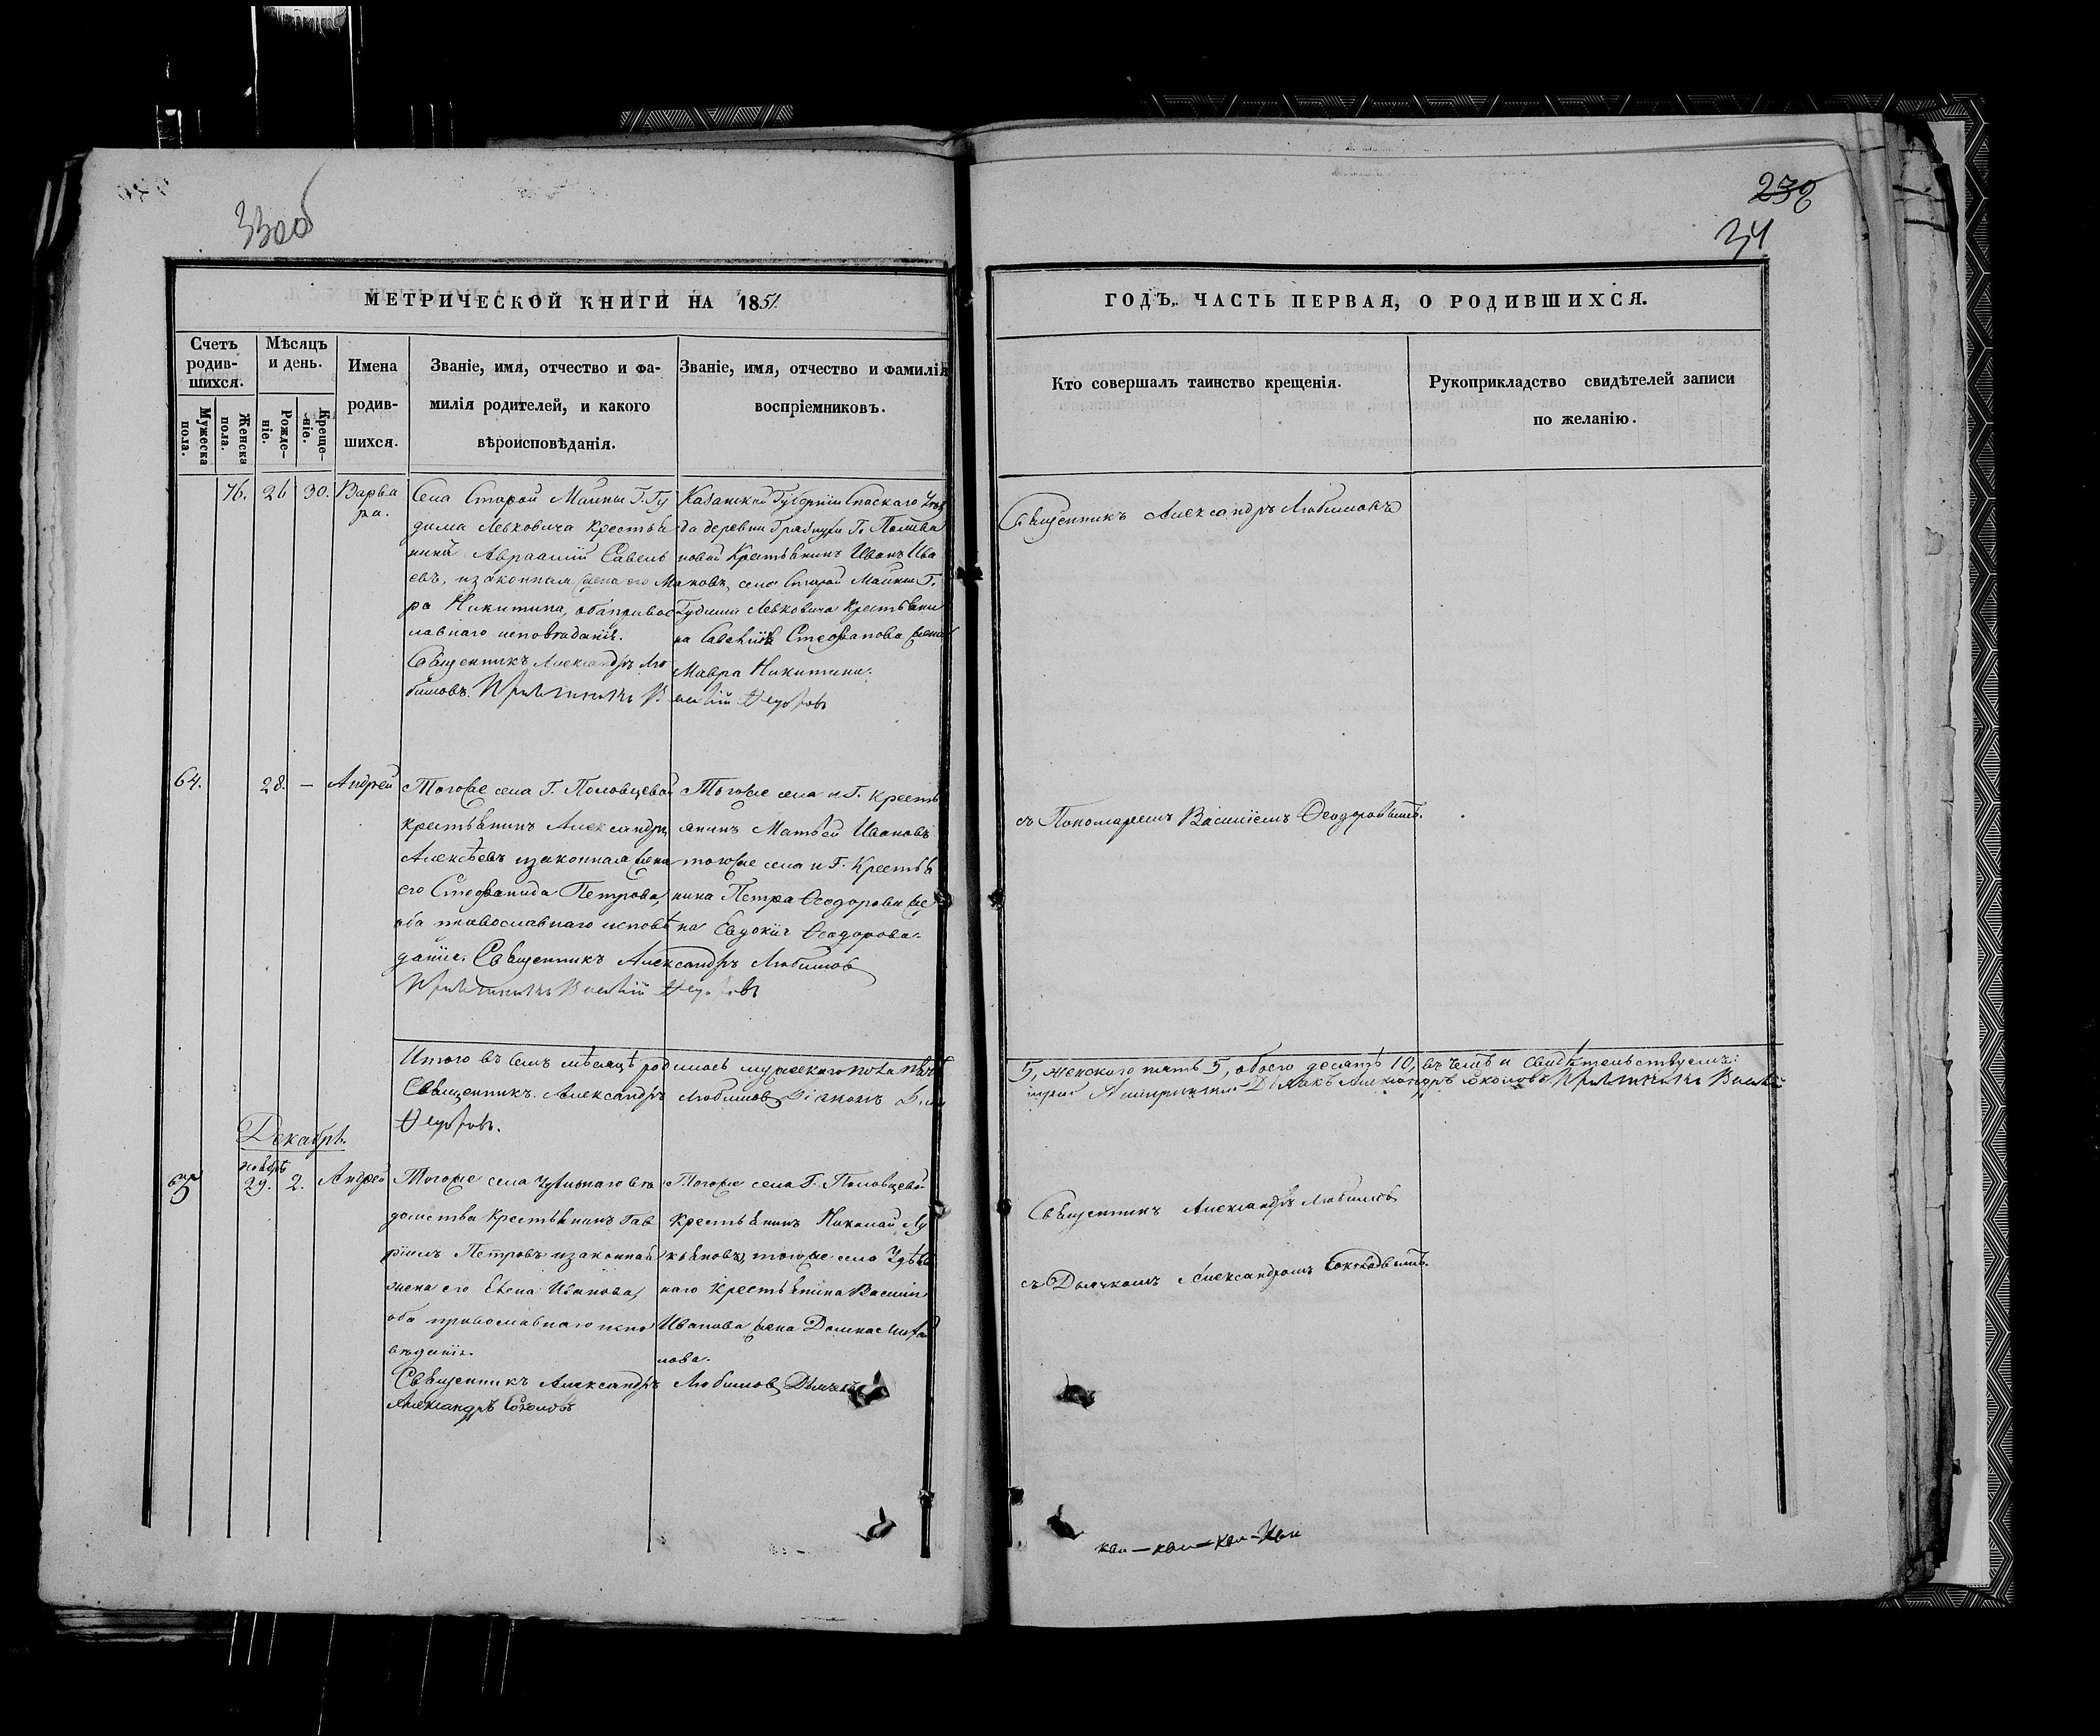 33об
238
34
МЕТРИЧЕСКОЙ КНИГИ НА 1851
ГОДЪ, ЧАСТЬ ПЕРВАЯ, О РОДИВШИХСЯ.
Счетъ родив-шихся.
Мужеска пола.
Женска пола.
Мѣсяцъ и день.
Рожде-ніе.
Креще-ніе.
Имена
родив-
шихся.
Званіе, имя, отчество и фа-
милія родителей, и какого
вѣроисповѣданія.
Званіе, имя, отчество и фамилія
воспріемниковъ.
Кто совершалъ таинство крещенія.
Рукоприкладство свидѣтелей записи
по желанію.
76. 26 30. Варва
ра.
Села Старой Маины Г. Гу
дима Левковича крестья
нинъ Авраамій Савель
евъ, и законная жена его Мав
ра Никитина, оба правос
лавнаго исповѣданія.
Священникъ Александръ Лю
бимовъ.
Казанской Губерніи Спаскаго Уѣз
да деревни Г. Полива
новой Крестьянинъ Иванъ Ива
новъ, села Старой Маины Г.
Гудима Левковича Крестьяни
на Стефанова жена
Мавра Никитина.
Священникъ Александръ Любимовъ
64. 28. — Андрей
Тогоже села Г. Половцевой
крестьянинъ Александръ
Алексѣевъ и законная жена
его Стефанида Петрова,
оба православнаго исповѣ
данія. Священникъ Александръ Любимовъ
Тогоже села и Г. Кресть
янинъ Матвей Ивановъ
тогоже села и Г. Крестья
нина Петра Ѳеодорова же
на Евдокія Ѳеодорова.
съ Пономаремъ Василіемъ Ѳеодоровымъ.
Итого въ семъ мѣсяцѣ родилось мужескаго пола пять
5, женскаго пять 5, обоего десять 10, въ чемъ и свидѣтельствуемъ:
Священникъ Александръ Любимовъ Діаконъ
Декабрь.
65 ноября 29. 2. Андрей
Тогоже села Удѣльнаго вѣ
домства Крестьянинъ Гав
ріилъ Петровъ и законная
жена его Елена Иванова,
оба православнаго испо
вѣданія.
Священникъ Александръ Любимовъ Дьячекъ
Александръ Соколовъ
Тогоже села Г. Половцевой
Крестьянинъ Николай Лу
кьяновъ, тогоже села Удѣль
наго Крестьянина Василія
Иванова жена Домна
Священникъ Александръ Любимовъ
съ Дьячкомъ Александромъ Соколовымъ.